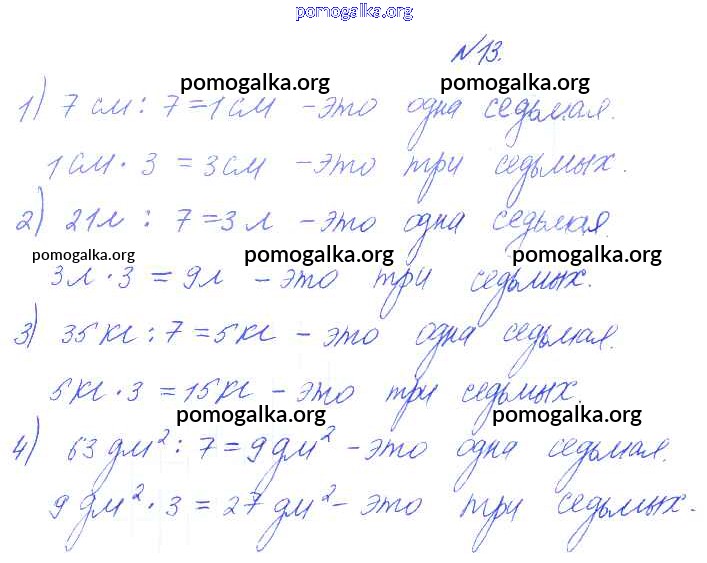 pomogalka.org
№13.
pomogalka.org pomogalka.org
1) 7 см : 7 = 1 см - это одна седьмая.
1 см · 3 = 3 см - это три седьмых.
2) 21 л : 7 = 3 л - это одна седьмая.
pomogalka.org pomogalka.org pomogalka.org
3 л · 3 = 9 л - это три седьмых.
3) 35 кг : 7 = 5 кг - это одна седьмая.
5 кг · 3 = 15 кг - это три седьмых.
pomogalka.org pomogalka.org
4) 63 дм² : 7 = 9 дм² - это одна седьмая.
9 дм² · 3 = 27 дм² - это три седьмых.